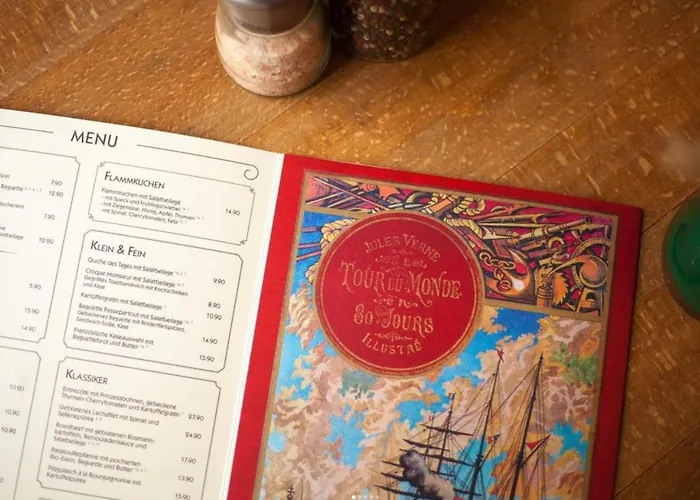 MENU
7.90
12.90
7.90
12.90
Salatbeilage
5.90
14.90
10.90
10.90
10.90
FLAMMKUCHEN
Flammkuchen mit Salatbeilage
- mit Speck und Frühlingszwiebel
- mit Ziegenkäse, Honig, Apfel, Thymian
- mit Spinat, Cherrytomaten, Feta
14.90
KLEIN & FEIN
Quiche des Tages mit Salatbeilage
9.90
Croque Monsieur mit Salatbeilage
Gegrilltes Toastsandwich mit Kochschinken
und Käse
8.90
Kartoffelgratin mit Salatbeilage
10.90
Baguette Passepartout mit Salatbeilage
Gebackenes Baguette mit Rinderfiletspitzen,
Sandwich-Soße, Käse
14.90
Französische Käseauswahl mit
Baguettebrot und Butter
15.90
KLASSIKER
Entrecôte mit Prinzessbohnen, gebackene
Thymian-Cherrytomaten und Kartoffelgratin
27.90
Gebratenes Lachsfilet mit Spinat und
Selleriepüree
24.90
Roastbeef mit gebratenen Rosmarin-
kartoffeln, Remouladensauce und
Salatbeilage
17.90
Ratatouillepfanne mit pochiertem
Bio-Eiern, Baguette und Butter
13.90
Pilzgulasch à la Bourguignonne mit
Kartoffelpüree
15.90
JULES VERNE
TOUR DU MONDE
EN
80 JOURS
ILLUSTRÉ